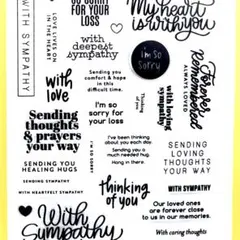 WITH SYMPATHY
LOVE LIVES ON
IN THE HEART
SO SORRY
FOR YOUR
LOSS
with
deepest
sympathy
My heart
is with you
I'm so
Sorry
Forever
Remembered
ALWAYS LOVED
with
love
Sending you
comfort & hope
in this
difficult time.
Thinking
of you
with loving
sympathy
Sending
thoughts &
prayers
your way
I'm so
sorry for
your loss
I'M SO SORRY
I've been thinking
about you each day.
Sending you a
much needed hug.
Hang in there.
SENDING
LOVING
THOUGHTS
YOUR WAY
SENDING YOU
HEALING HUGS
WITH SINCERE SYMPATHY
WITH HEARTFELT SYMPATHY
thinking
of you
WITH SYMPATHY
Our loved ones
are forever close
to us in our memories.
With
Sympathy
With caring thoughts